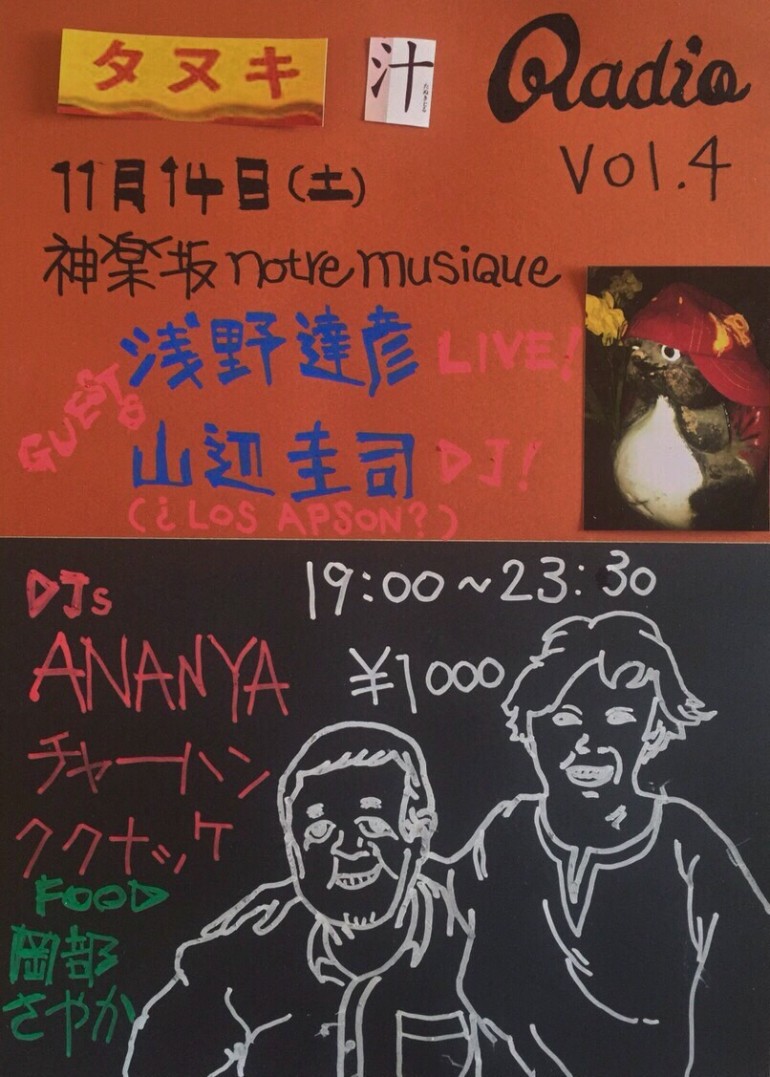 タヌキ 汁 Radio
たぬきじる
Vol.4
11月14日(土)
神楽坂 notre musique
GUESTS
浅野達彦 LIVE!
山辺圭司 DJ!
(¿LOS APSON?)
DJs
19:00~23:30
ANANYA
¥1000
チャーハン
ククナッケ
FOOD
岡部
さやか